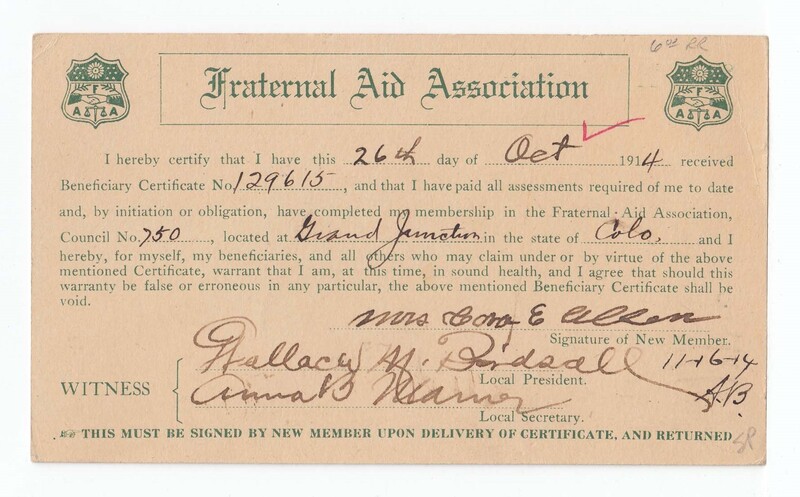 6 RR
Fraternal Aid Association
F
A A
F
A A
I hereby certify that I have this 26th day of Oct 1914 received
Beneficiary Certificate No. 129615, and that I have paid all assessments required of me to date
and, by initiation or obligation, have completed my membership in the Fraternal Aid Association,
Council No. 750, located at Grand Junction in the state of Colo. and I
hereby, for myself, my beneficiaries, and all others who may claim under or by virtue of the above
mentioned Certificate, warrant that I am, at this time, in sound health, and I agree that should this
warranty be false or erroneous in any particular, the above mentioned Beneficiary Certificate shall be
void.
Mrs Cora E Allen
Signature of New Member.
Wallace M. Birdsall 11-16-14
Local President.
WITNESS
A.B.
Anna B Warner
Local Secretary.
THIS MUST BE SIGNED BY NEW MEMBER UPON DELIVERY OF CERTIFICATE, AND RETURNED